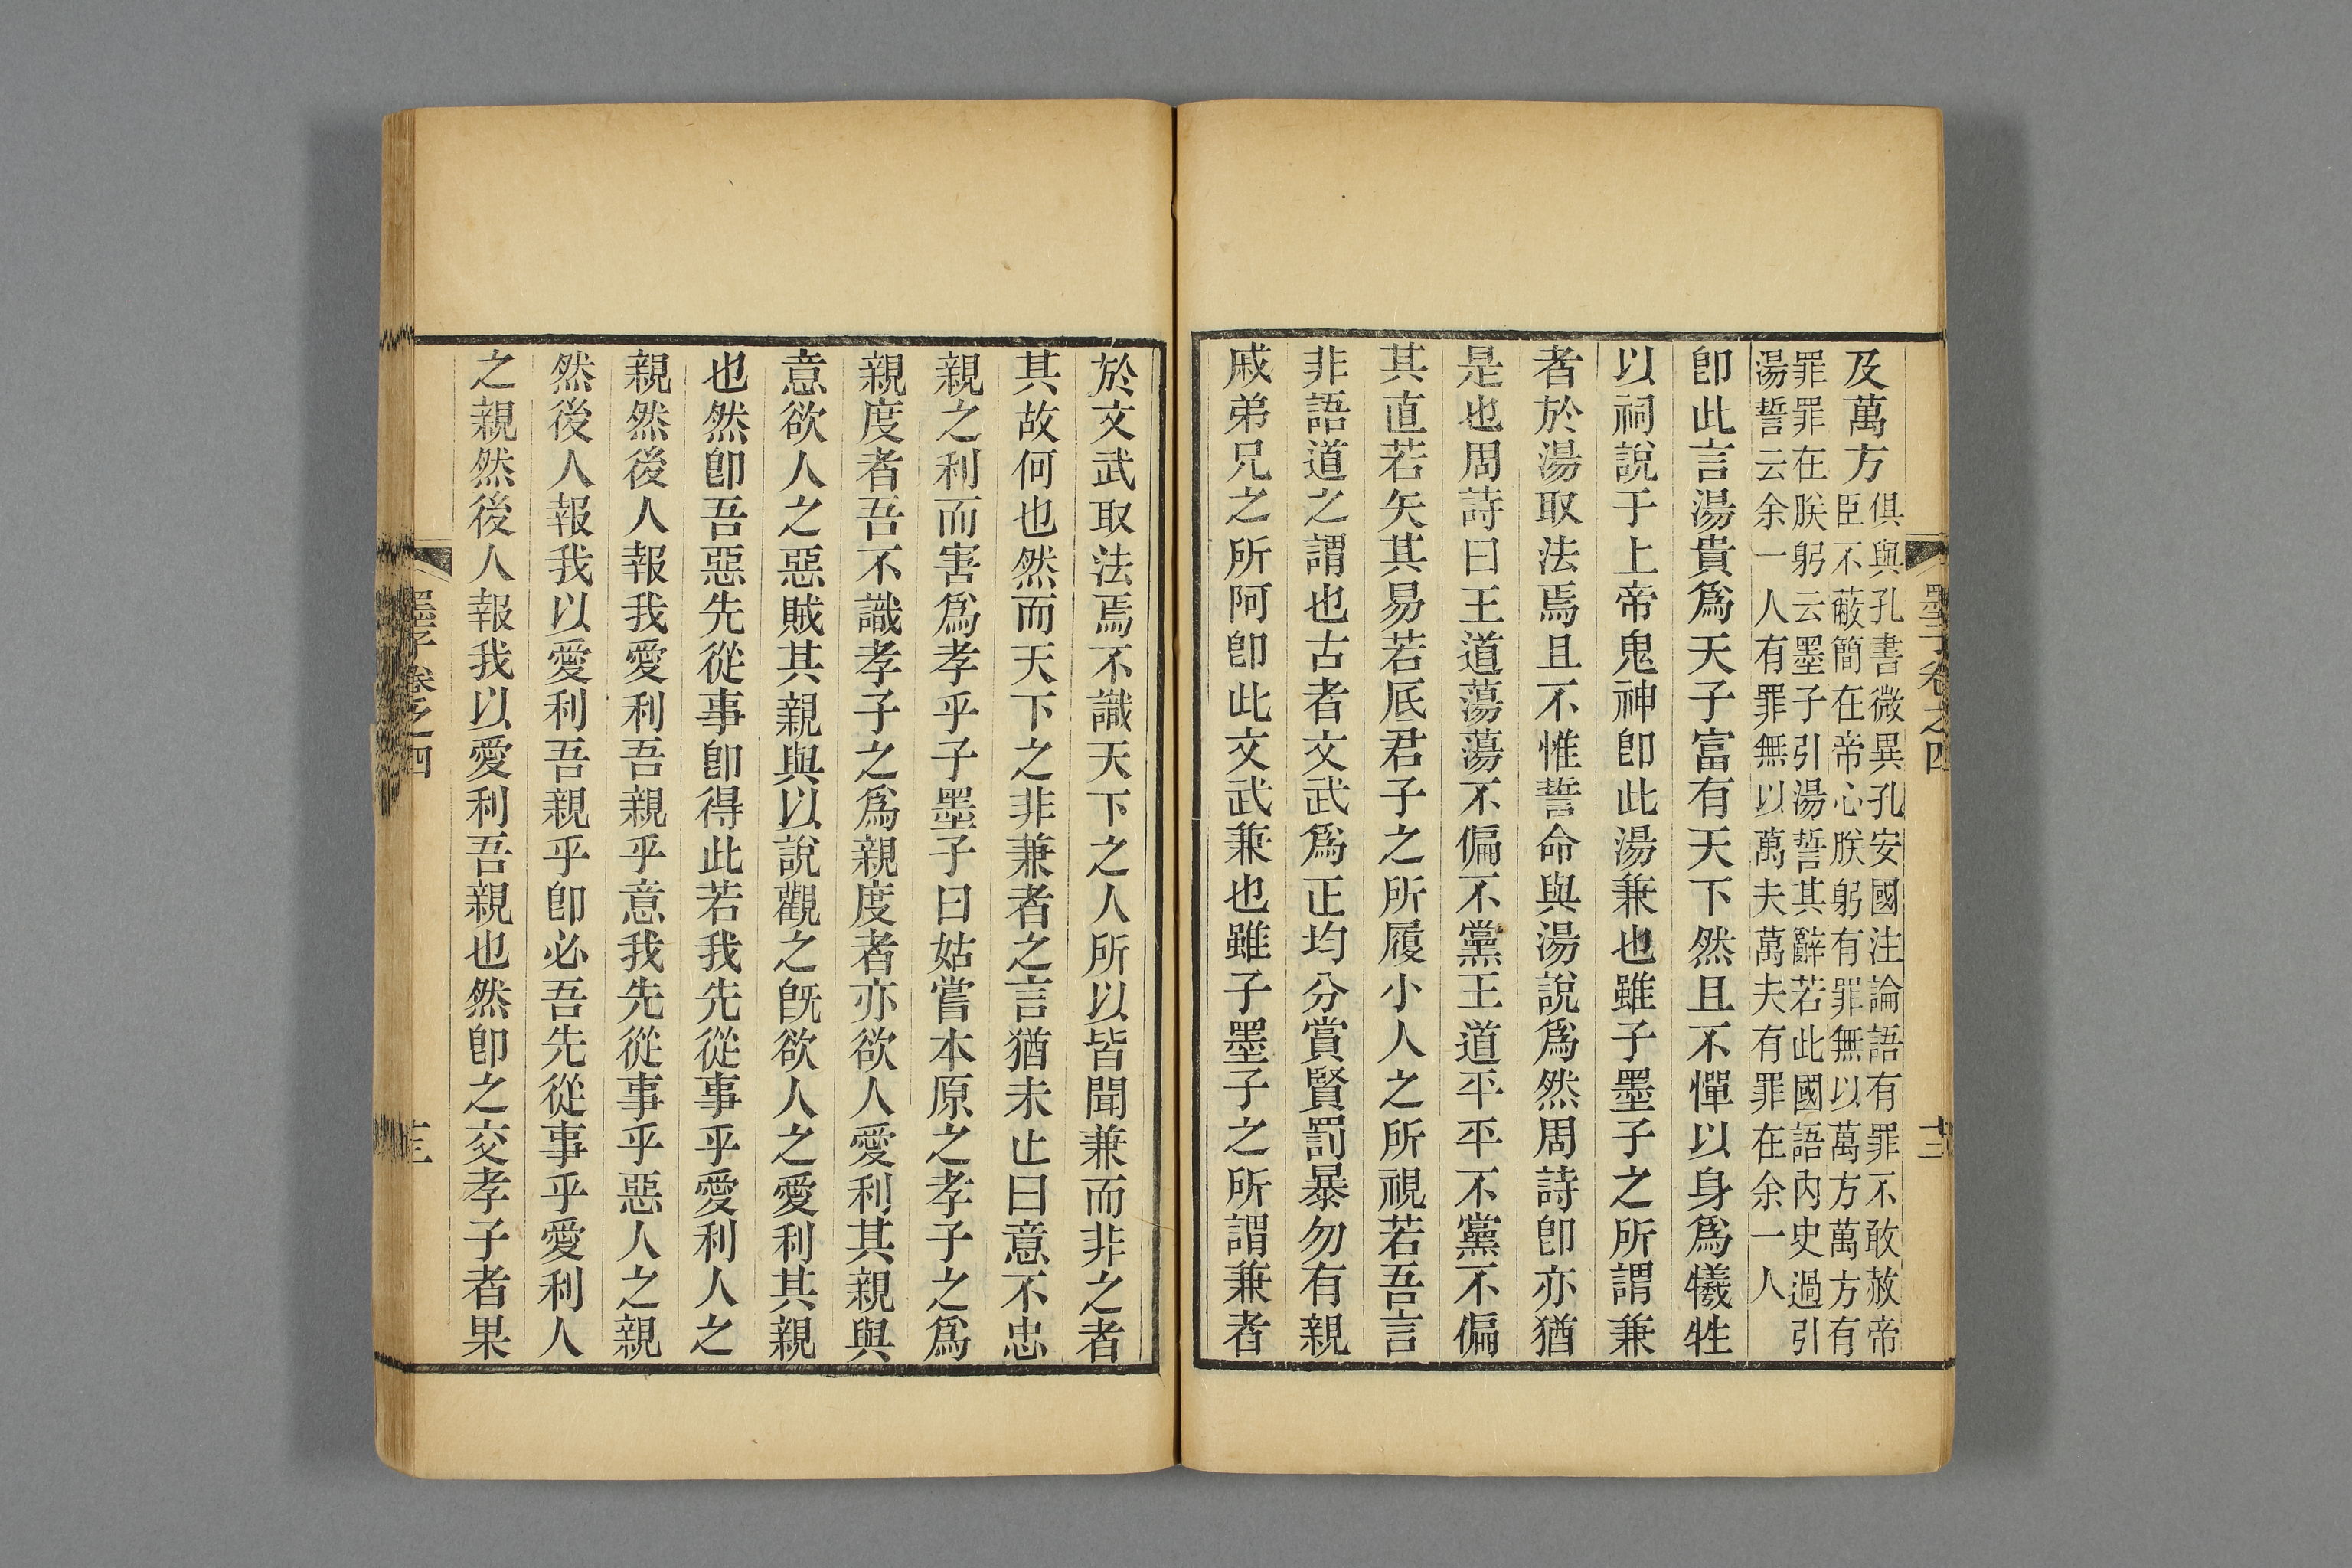 墨子卷之四
十二
及萬方俱與孔書微異孔安國注論語有罪不敢赦帝
臣不蔽簡在帝心朕躬有罪無以萬方萬方有
罪罪在朕躬云墨子引湯誓其辭若此國語內史過引
湯誓云余一人有罪無以萬夫萬夫有罪在余一人
卽此言湯貴爲天子富有天下然且不憚以身爲犧牲
以祠說于上帝鬼神卽此湯兼也雖子墨子之所謂兼
者於湯取法焉且不惟誓命與湯說爲然周詩卽亦猶
是也周詩曰王道蕩蕩不偏不黨王道平平不黨不偏
其直若矢其易若厎君子之所履小人之所視若吾言
非語道之謂也古者文武爲正均分賞賢罰暴勿有親
戚弟兄之所阿卽此文武兼也雖子墨子之所謂兼者
於文武取法焉不識天下之人所以皆聞兼而非之者
其故何也然而天下之非兼者之言猶未止曰意不忠
親之利而害爲孝乎子墨子曰姑嘗本原之孝子之爲
親度者吾不識孝子之爲親度者亦欲人愛利其親與
意欲人之惡賊其親與以說觀之旣欲人之愛利其親
也然卽吾惡先從事卽得此若我先從事乎愛利人之
親然後人報我愛利吾親乎意我先從事乎惡人之親
然後人報我以愛利吾親乎卽必吾先從事乎愛利人
之親然後人報我以愛利吾親也然卽之交孝子者果
墨子卷之四